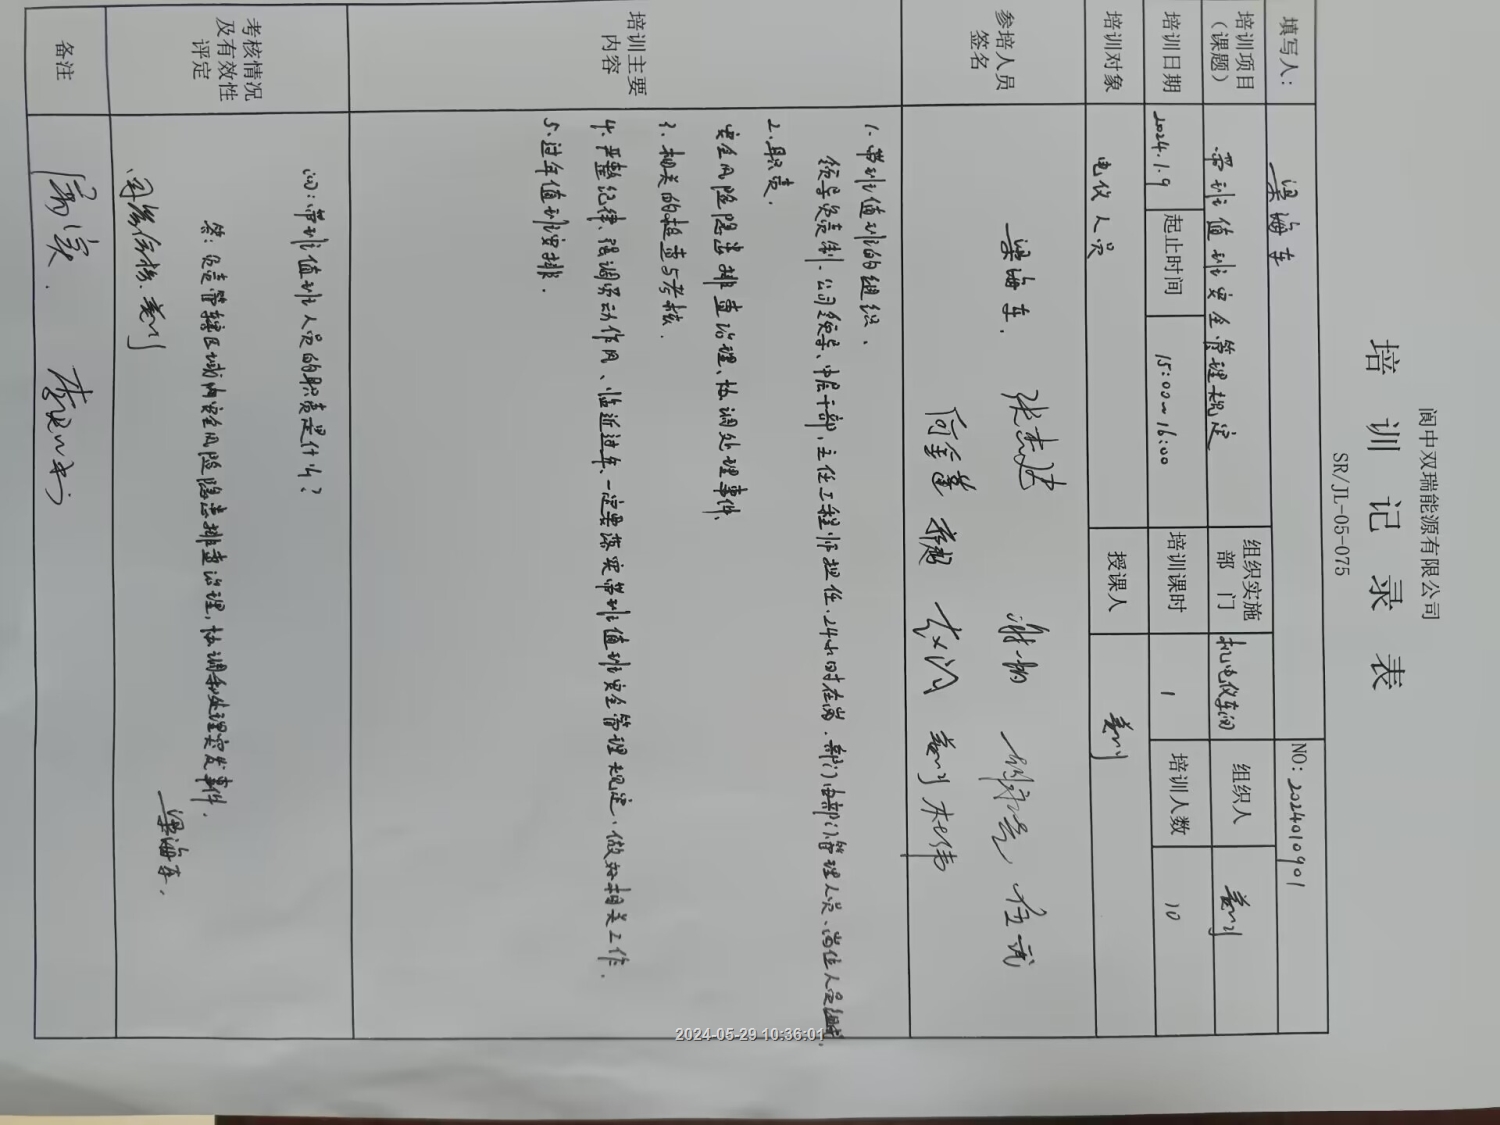 阆中双瑞能源有限公司
培训记录表
SR/JL-05-075
填写人: 梁海车 NO: 2024010901
培训项目（课题） 带班值班安全管理规定 组织实施部门 机电仪车间 组织人
培训日期 2024.1.9 起止时间 15:00~16:00 培训课时 1 培训人数 10
培训对象 电仪人员 授课人
参培人员签名 梁海车.
何金莲
培训主要内容
1. 带班值班的组织、
领导负责制. 公司领导、中层干部, 主任工程师担任. 24小时在岗. 部门由部门管理人员、岗位人员组成.
2. 职责.
安全风险隐患排查治理、协调处理事件.
3. 相关的检查与考核.
4. 严整纪律、强调劳动作风、临近过年、一定要落实带班值班安全管理规定. 做好相关工作.
5. 过年值班安排.
考核情况及有效性评定
问: 带班值班人员的职责是什么?
答: 负责管辖区域内安全风险隐患排查治理, 协调和处理突发事件.
梁海车.
备注
2024-05-29 10:36:01